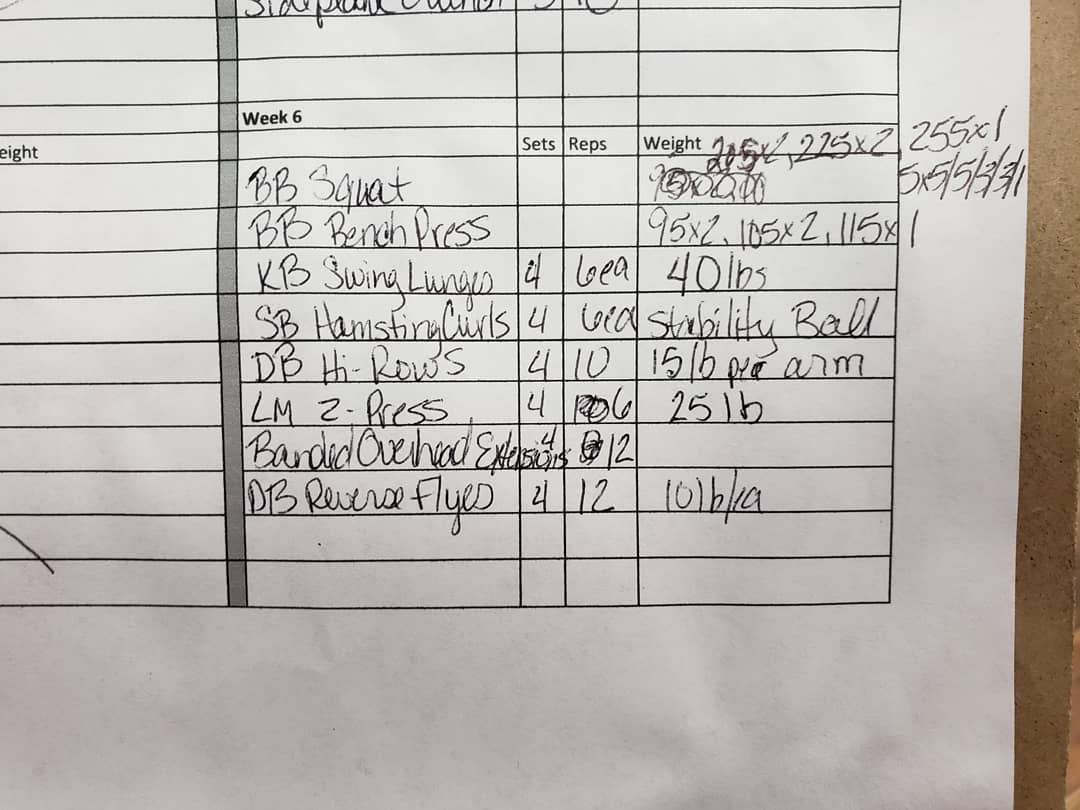 Week 6
eight Sets Reps Weight 205x2, 225x2, 255x1
BB Squat 5x5/5/3/3/1
BB Bench Press 95x2, 105x2, 115x1
KB Swing Lunges 4 6ea 40lbs
SB HamstingCurls 4 6ea Stability Ball
DB Hi-Rows 4 10 15lb per arm
LM Z-Press 4 6 25lb
Banded Overhead Extensions 4 12
DB Reverse Flyes 4 12 10lb/ea